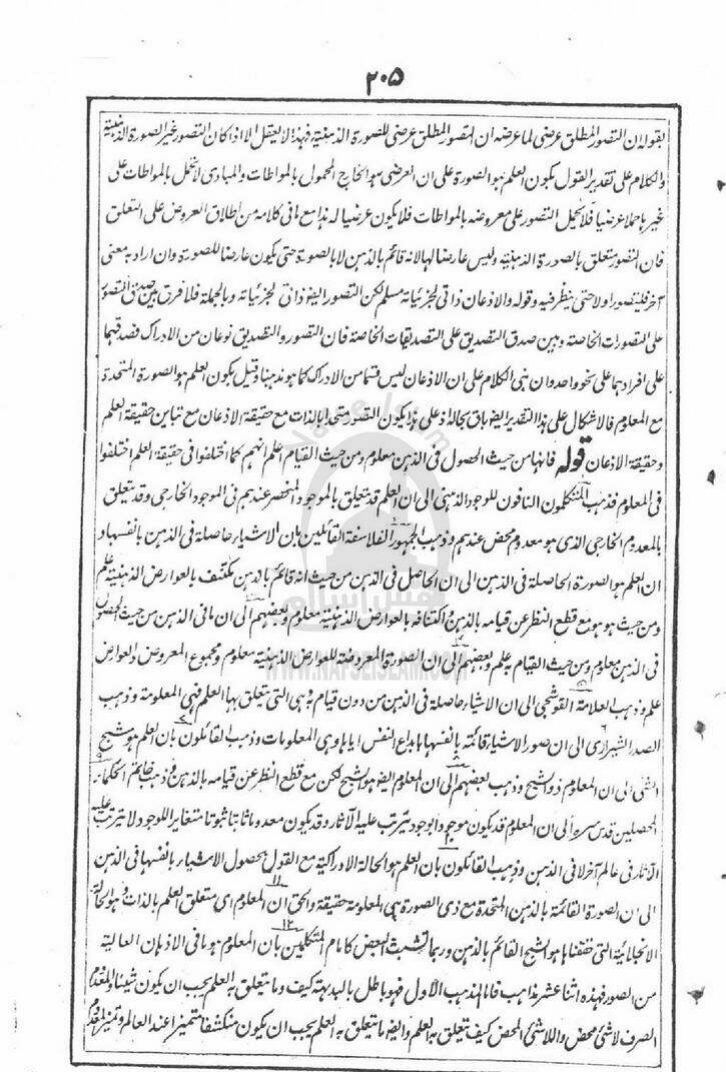 ٢٠٥
بقوله ان التصور المطلق عرضي لما عرضه ان المتصور المطلق عرضي للصورة الذهنية فهذا لا يعقل الا اذا كان التصور غير الصورة الذهنية
والكلام على تقدير القول بكون العلم هو الصورة على ان العرضي هو الخارج المحمول بالمواطات والمبادي لا تحمل بالمواطات على
غيرها حملا عرضيا فلا يحمل التصور على معروضه بالمواطات فلا يكون عرضيا له هذا مع ما في كلامه من اطلاق العروض على التعلق
فان التصور متعلق بالصورة الذهنية وليس عارضا لها لانه قائم بالذهن لا بالصورة حتى يكون عارضا للصورة وان اراد به معنى
آخر فليتصور اولا حتى ينظر فيه وقوله والاذعان ذاتي لجزئياته مسلم لكن التصور ايضا ذاتي لجزئياته وبالجملة فلا فرق بين صدق التصور
على التصورات الخاصة وبين صدق التصديق على التصديقات الخاصة فان التصور والتصديق نوعان من الادراك فصدقهما
على افرادهما على نحو واحد وان بني الكلام على ان الاذعان ليس قسما من الادراك كما هو مذهبنا وقيل بكون العلم هو الصورة المتحدة
مع المعلوم فالاشكال على هذا التقدير ايضا باق بحاله اذ على هذا يكون التصور متحدا بالذات مع حقيقة الاذعان مع تباين حقيقة العلم
وحقيقة الاذعان قوله فانها من حيث الحصول في الذهن معلوم ومن حيث القيام اعلم انهم كما اختلفوا في حقيقة العلم اختلفوا
في المعلوم فذهب المتكلمون النافون للوجود الذهني الى ان العلم قد يتعلق بالموجود المنحصر عندهم في الموجود الخارجي وقد يتعلق
بالمعدوم الخارجي الذي هو معدوم محض عندهم وذهب الجمهور الفلاسفة القائلين بان الاشياء حاصلة في الذهن بانفسها و
ان العلم هو الصورة الحاصلة في الذهن الى ان الحاصل في الذهن من حيث انه قائم بالذهن مكتنف بالعوارض الذهنية علم
ومن حيث هو هو مع قطع النظر عن قيامه بالذهن واكتنافه بالعوارض الذهنية معلوم وبعضهم الى ان ما في الذهن من حيث الحصول
في الذهن معلوم ومن حيث القيام به علم وبعضهم الى ان الصورة المعروضة للعوارض الذهنية معلوم ومجموع المعروض والعوارض
علم وذهب العلامة القوشجي الى ان الاشياء حاصلة في الذهن من دون قيام وهي التي يتعلق بها العلم فهي المعلومة وذهب
الصدر الشيرازي الى ان صور الاشياء قائمة بانفسها بابداع النفس اياها وهي المعلومات وذهب القائلون بان العلم هو شبح
الشئ الى ان المعلوم ذو الشبح وذهب بعضهم الى ان المعلوم ايضا هو الشبح لكن مع قطع النظر عن قيامه بالذهن وذهب خاتم الحكماء
المحصلين قدس سره الى ان المعلوم قد يكون موجودا بوجود يترتب عليه الآثار وقد يكون معدوما ثابتا ثبوتا متغاير اللوجود لا يترتب عليه
الآثار في عالم آخر لا في الذهن وذهب القائلون بان العلم هو الحالة الادراكية مع القول بحصول الاشياء بانفسها في الذهن
الى ان الصورة القائمة بالذهن المتحدة مع ذي الصورة هي المعلومة حقيقة والحق ان المعلوم اي متعلق العلم بالذات وهو الحالة
الانجلائية التي حققناها هو الشبح القائم بالذهن وربما تشبث البعض كامام المتكلمين بان المعلوم هو ما في الاذهان العالية
من الصور فهذه اثنا عشر مذاهب فاما المذهب الاول فهو باطل بالبديهة كيف وما يتعلق به العلم يجب ان يكون شيئا والمعدوم
الصرف لا شئ محض واللاشئ المحض كيف تعلق به العلم وايضا ما يتعلق به العلم يجب ان يكون منكشفا متميزا عند العالم وتميز المعدوم
Nafse Islam
نفس اسلام
WWW.NAFSEISLAM.COM